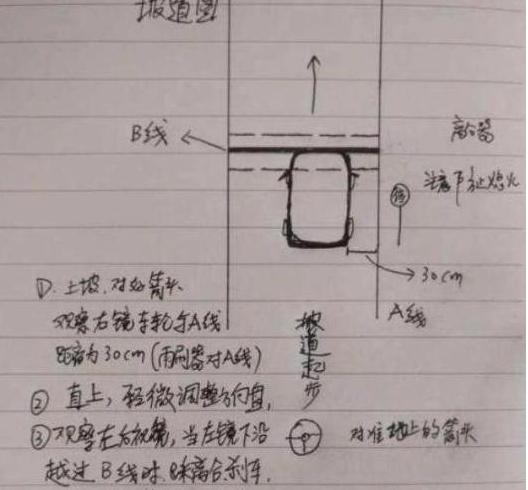 坡道图
B线
离合器
注意下坡熄火
停
30cm
A线
①. 上坡. 对好箭头
观察右镜车轮与A线
距离为30cm(雨刷器对A线)
② 直上, 轻微调整方向盘,
③ 观察左后视镜, 当左镜下沿
越过B线时. 踩离合.刹车.
坡道起步
对准地上的箭头